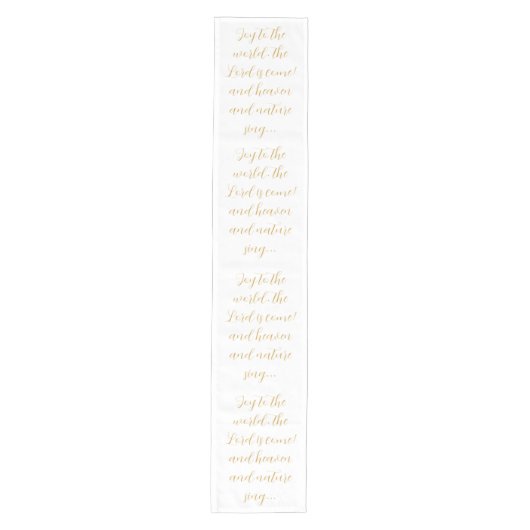 Joy to the
world, the
Lord is come!
and heaven
and nature
sing...
Joy to the
world, the
Lord is come!
and heaven
and nature
sing...
Joy to the
world, the
Lord is come!
and heaven
and nature
sing...
Joy to the
world, the
Lord is come!
and heaven
and nature
sing...